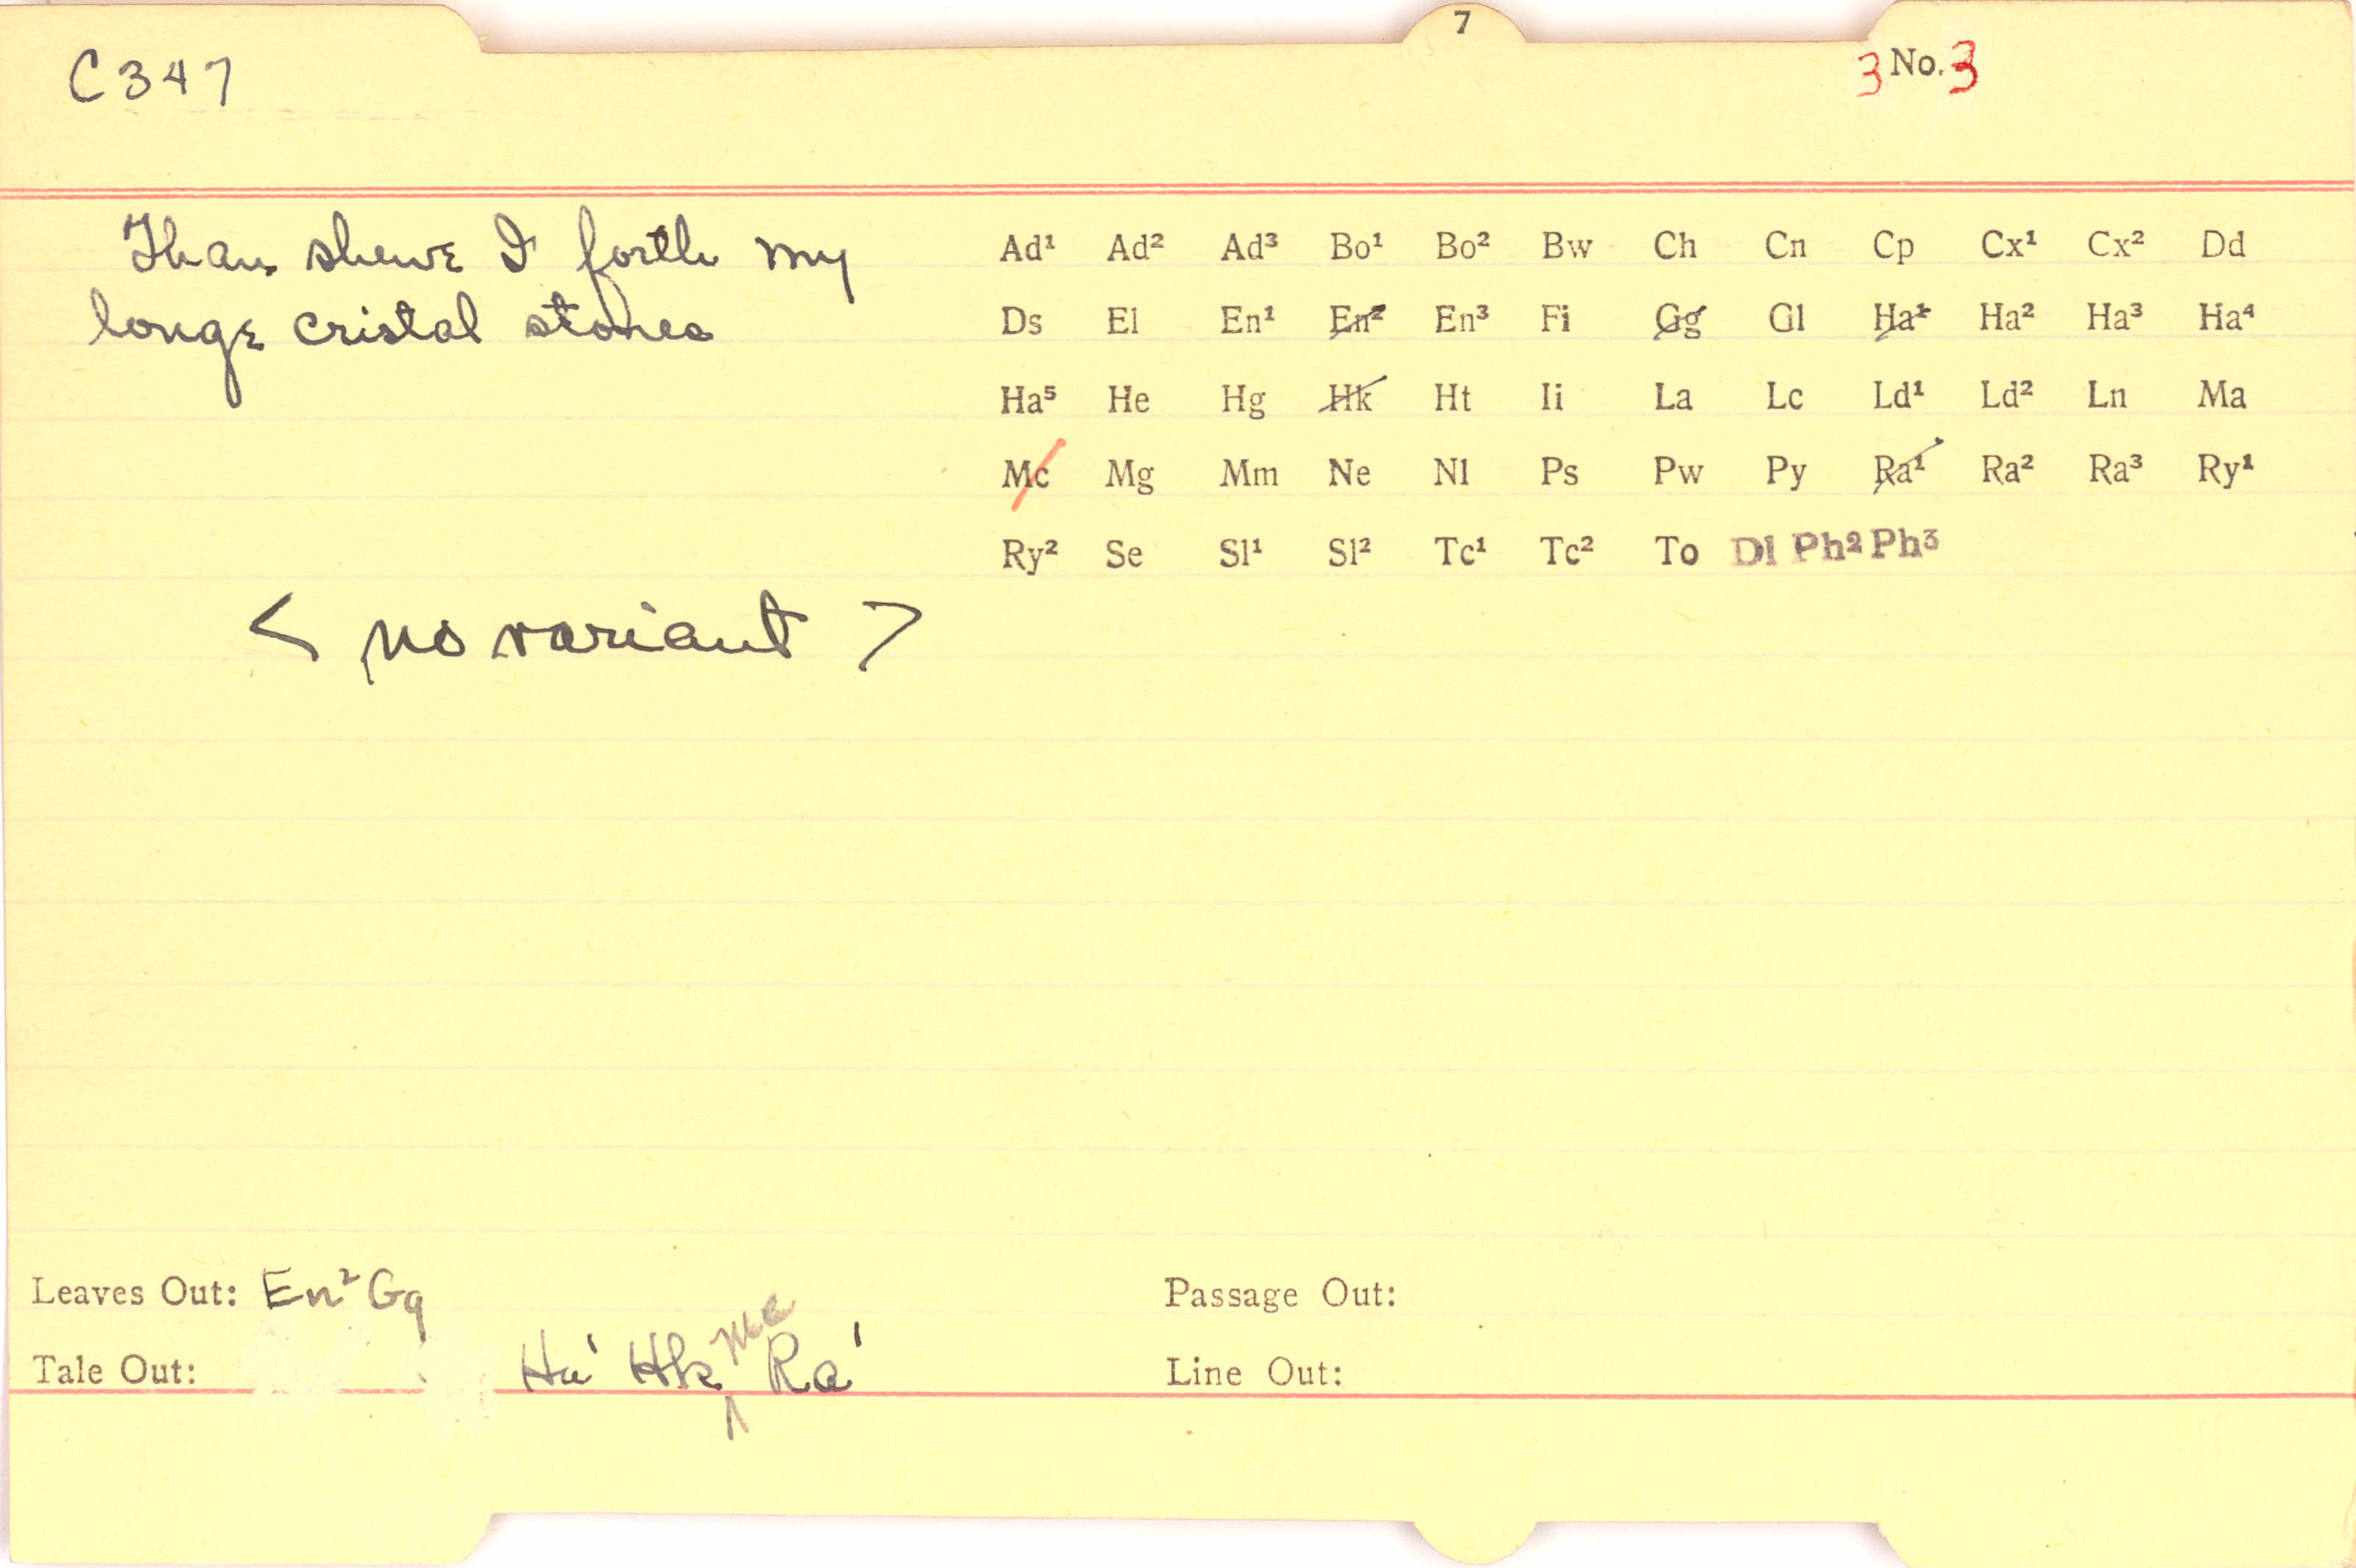 7
C347
3 No. 3
Than shewe I forth my
longe cristal stones
Ad¹ Ad² Ad³ Bo¹ Bo² Bw Ch Cn Cp Cx¹ Cx² Dd
Ds El En¹ En² En³ Fi Gg Gl Ha¹ Ha² Ha³ Ha⁴
Ha⁵ He Hg Hk Ht Ii La Lc Ld¹ Ld² Ln Ma
Mc Mg Mm Ne Nl Ps Pw Py Ra¹ Ra² Ra³ Ry¹
Ry² Se Sl¹ Sl² Tc¹ Tc² To Dl Ph² Ph³
< no variant >
Leaves Out: En² Gg
Passage Out:
Tale Out: Ha¹ Hk Mc Ra¹
Line Out: